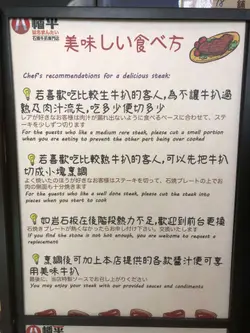 幡平
はちまんたい
石燒牛扒專門店
美味しい食べ方
Chef's recommendations for a delicious steak:
若喜歡吃比較生牛扒的客人,為不讓牛扒過
熟及肉汁流失,吃多少便切多少
レアが好きなお客様は肉汁が漏れ出ないように食べるペースに合わせて、ステ
ーキを少しずつ切ります
For the guests who like a medium rare steak, please cut a small portion
when you are eating to prevent the other part being over cooked
若喜歡吃比較熟牛扒的客人,可以先把牛扒
切成小塊烹調
よく焼いたのほうが好きなお客様はステーキを切って、石焼プレートの上でお
肉の側面も十分焼きます
For the guests who like a well done steak, please cut the steak into
pieces when you start to cook
如岩石板在後階段熱力不足,歡迎到前台更換
石焼きプレートが熱くなかったらお申し付け下さい、交換いたします
If you find the stone is not hot enough, you are welcome to request a
replacement
烹調後可加上本店提供的各款醬汁便可享
用美味牛扒
最後に、当店特製ソースでお召し上がりください
You may enjoy your steak with our provided sauces and condiments